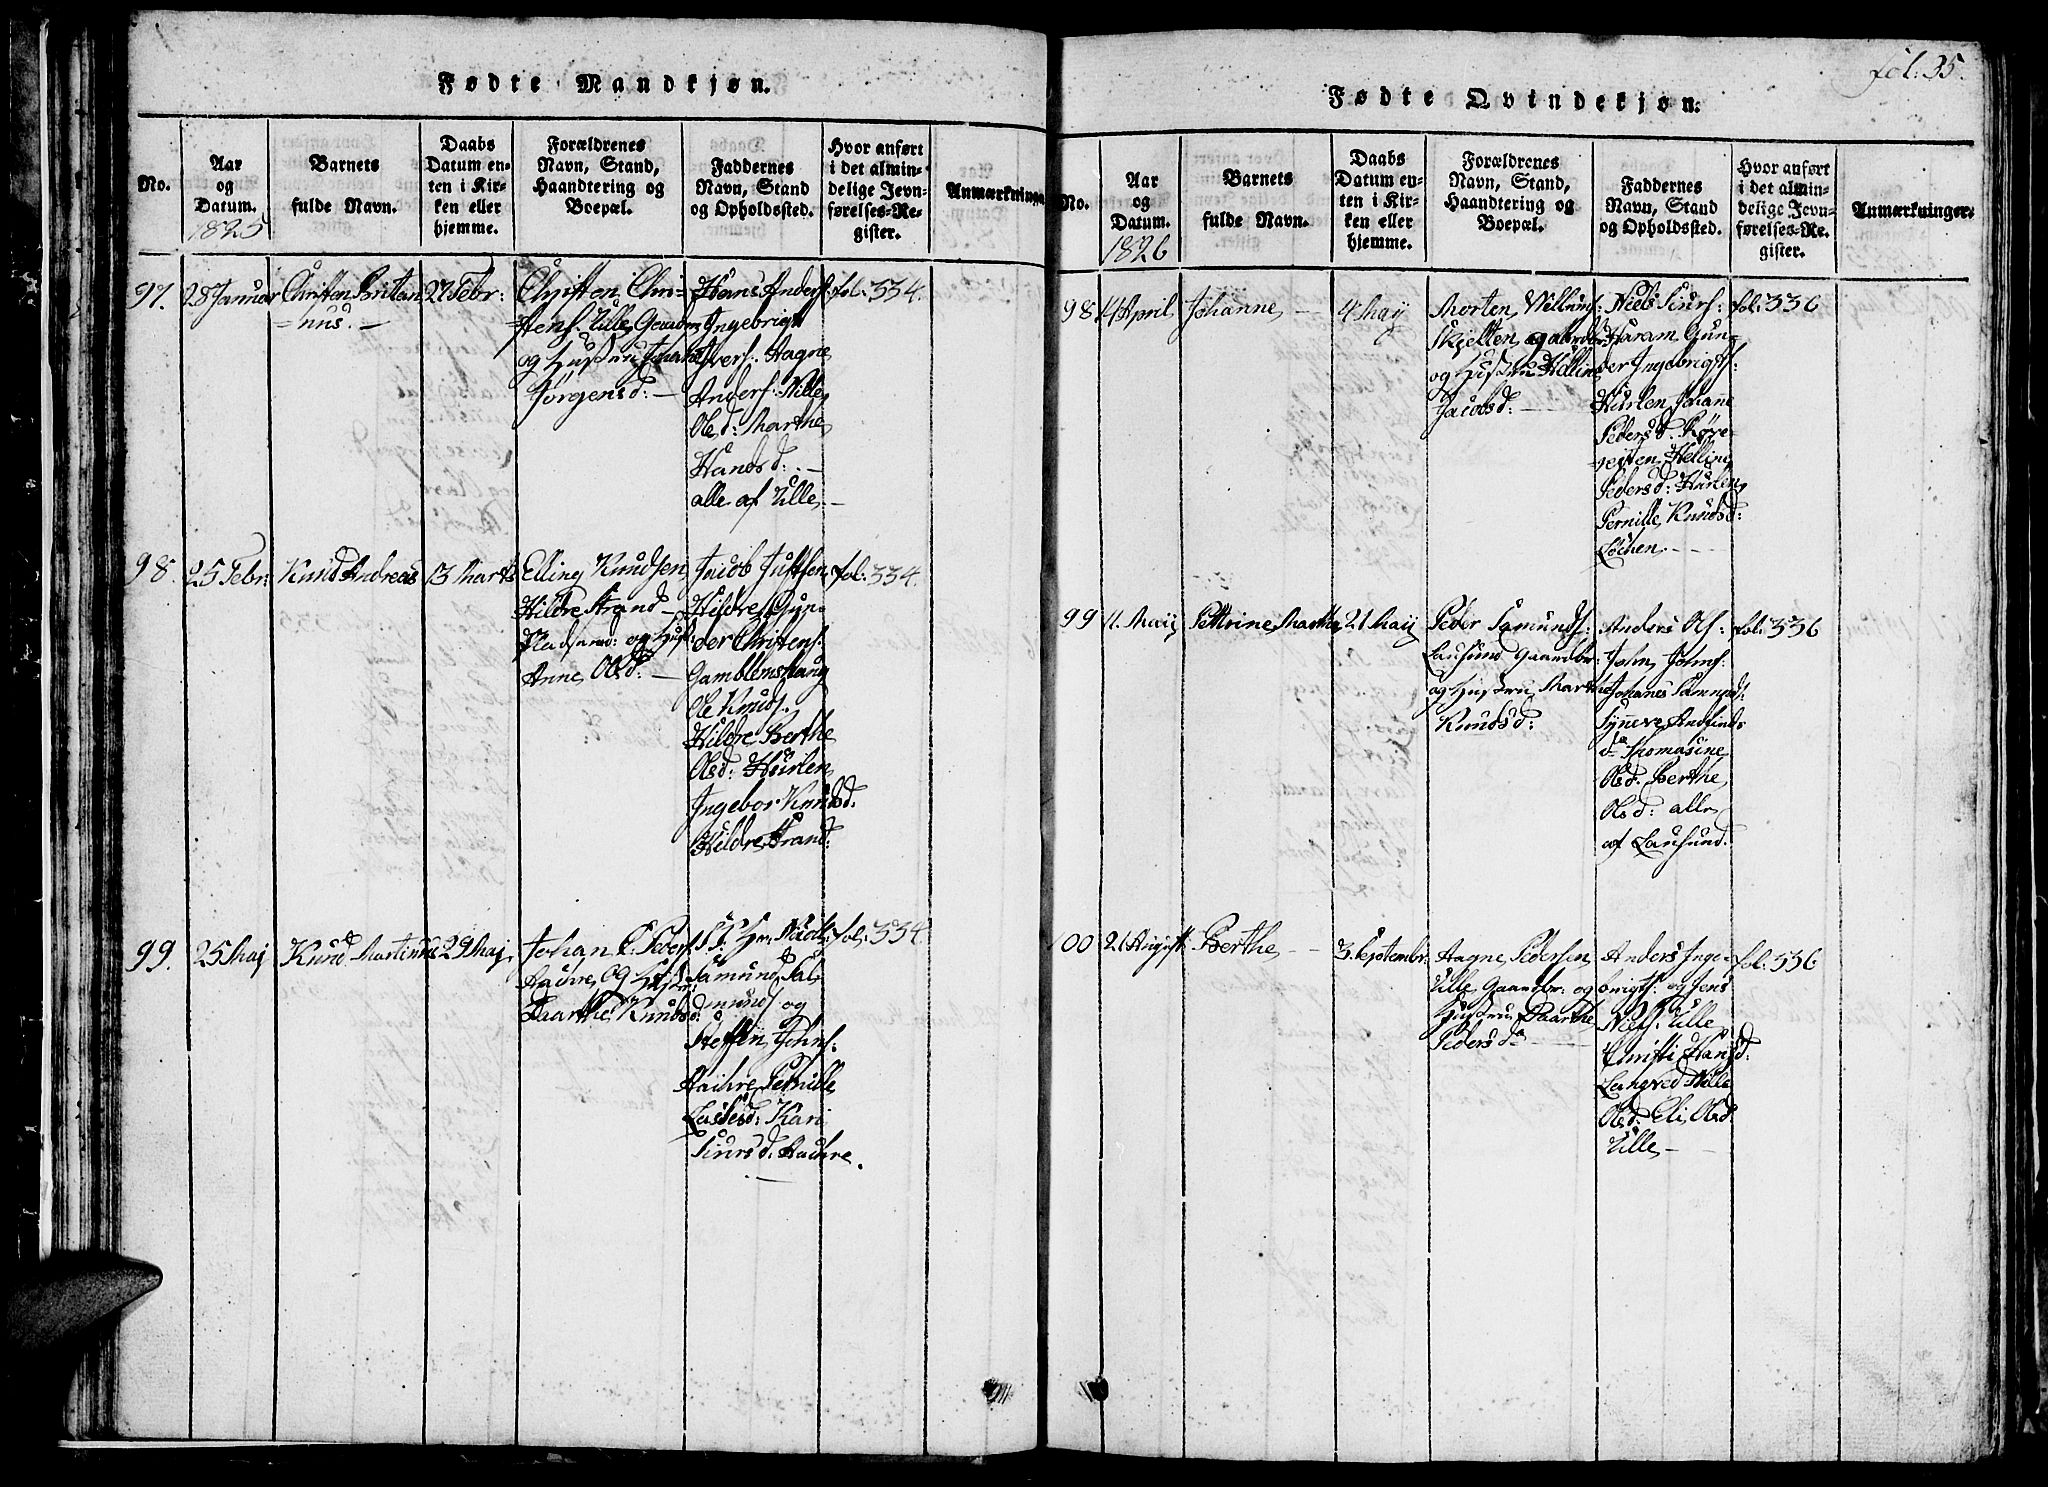 Fødte Mandkjøn.
No.
Aar
og
Datum.
1825
Barnets
fulde Navn.
Daabs
Datum en-
ten i Kir-
ken eller
hjemme.
Forældrenes
Navn, Stand,
Haandtering og
Boepæl.
Faddernes
Navn, Stand
og Opholdssted.
Hvor anført
i det almin-
delige Jevn-
førelses-Re-
gister.
Anmærkninger
97.
28 Januar
Christen
=nus. —
27 Febr:
Christen Chri=
=stens. Ulle,
og Hustru
Jørgensd: —
Hans Anders.
Ingebrigt
Ivers. Hagne
Anders: Nille,
Olsd: Marthe,
Hansd: . —
alle af Ulle, —
fol: 334.
98.
25 Febr:
Knud Andreas
13 Marts
Elling Knudsen,
Hildre Strand —
og Hust:
Anne Olsd: —
Jacob Justsen,
Hildre, Gun-
der Christens.
Gamblemshaug
Ole Knuds.
Hildre Berthe
Olsd: Hurlen,
Ingebor Knudsd:
Hildre Strand:
fol: 334.
99.
25 Maj
Knud Martinus
29 Maj,
Johan P. Peders.
og Hustr:
Knudsd:
Samund Sal-
munds og
Steffen Johns.
Pernille
Kari
fol: 334.
fol: 35.
Fødte Qvindekjøn.
No.
Aar
og
Datum.
1826
Barnets
fulde Navn.
Daabs
Datum en-
ten i Kir-
ken eller
hjemme.
Forældrenes
Navn, Stand,
Haandtering og
Boepæl.
Faddernes
Navn, Stand
og Opholdssted.
Hvor anført
i det almin-
delige Jevn-
førelses-Re-
gister.
Anmærkninger.
98
14 April
Johanne, —
4 Maij
Morten Willums:
Skjelten, gaardbr:
og Hustru Helline
Jacobsd: —
Niels Siurs:
Haram Gun-
der Ingebrigts:
Hurlen, Johane
Pedersd. Røve-
=reiten, Helline,
Pedersd: Hurlen,
Pernille, Knudsd:
Løchen. —
fol: 336
99
11. Maij
Pettrine, Marthe,
21 Maij
Peder Samunds:
Lausund Gaardbr:
og Hustru Marthe
Knudsd:
Anders Ols:
John, Johns:
Johanes Samunds:
Synneve,
d: Thomasine,
Olsd. Berthe,
Olsd: alle,
af Lausund.
fol: 336
100
21 August
Berthe —
3. Septembr:
Hagne Pedersen,
Ulle, Gaardbr: og
Hustru Maarthe
Pedersd: —
Anders Inge-
brigts: og Jens
Niels: Ulle,
Christi Hansd:
Longved Nille
Olsd. Eli, Olsd.
Ulle, —
fol: 336